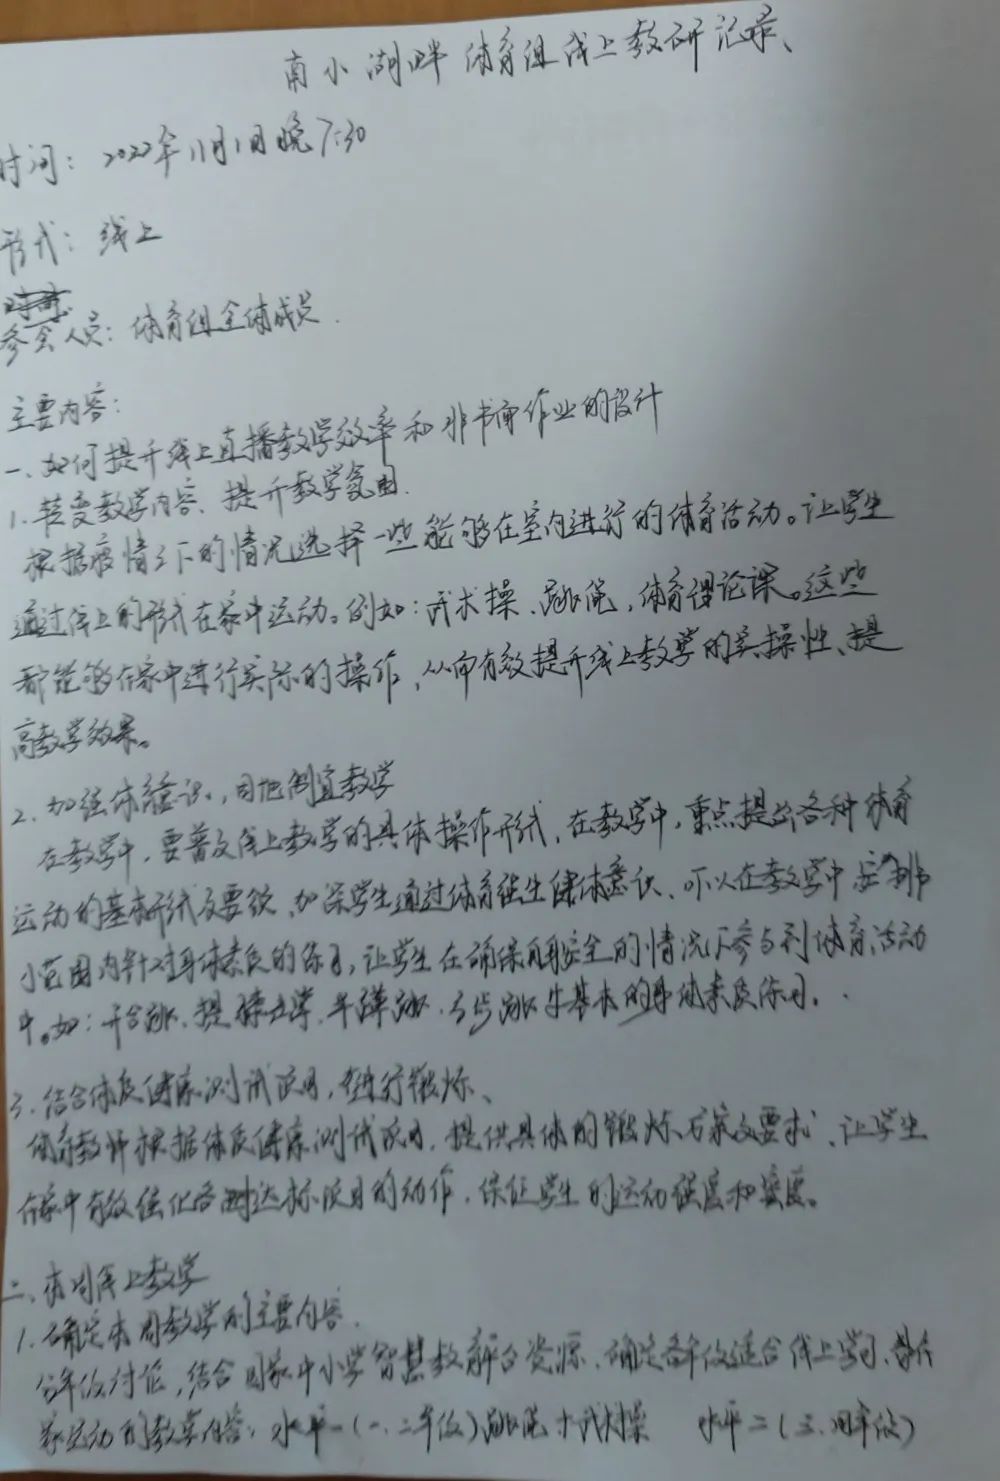 南小湖畔体育组线上教研记录、
时间：2022年11月1日晚7:30
形式：线上
参会人员：体育组全体成员.
主要内容：
一、如何提升线上直播教学效率和非书面作业的设计
1.转变教学内容、提升教学氛围.
根据疫情之下的情况选择一些能够在室内进行的体育活动。让学生
通过线上的形式在家中运动。例如：武术操、跳绳，体育理论课。这些
都能够在家中进行实际的操作，从而有效提升线上教学的实操性、提
高教学效果。
2.加强体育意识，因地制宜教学
在教学中，要普及线上教学的具体操作形式，在教学中，重点提出各种体育
运动的基本形式及要领、加深学生通过体育强生健体意识、可以在教学中安排
小范围内针对身体素质的练习，让学生在确保自身安全的情况下参与到体育活动
中。如：开合跳、提膝 半蹲跳、弓步跳等基本的身体素质练习.
3.结合体质健康测试项目，进行锻炼、
体育教师根据体质健康测试项目，提供具体的锻炼方案及要求、让学生
在家中有效强化各测达标项目的动作，保证学生的运动强度和密度。
二、本周线上教学
1.确定本周教学的主要内容.
分年级讨论，结合国家中小学智慧教育平台资源、确定各年级适合线上学习、
家运动的教学内容：水平一（一、二年级）跳绳+武术操 水平二（三、四年级）